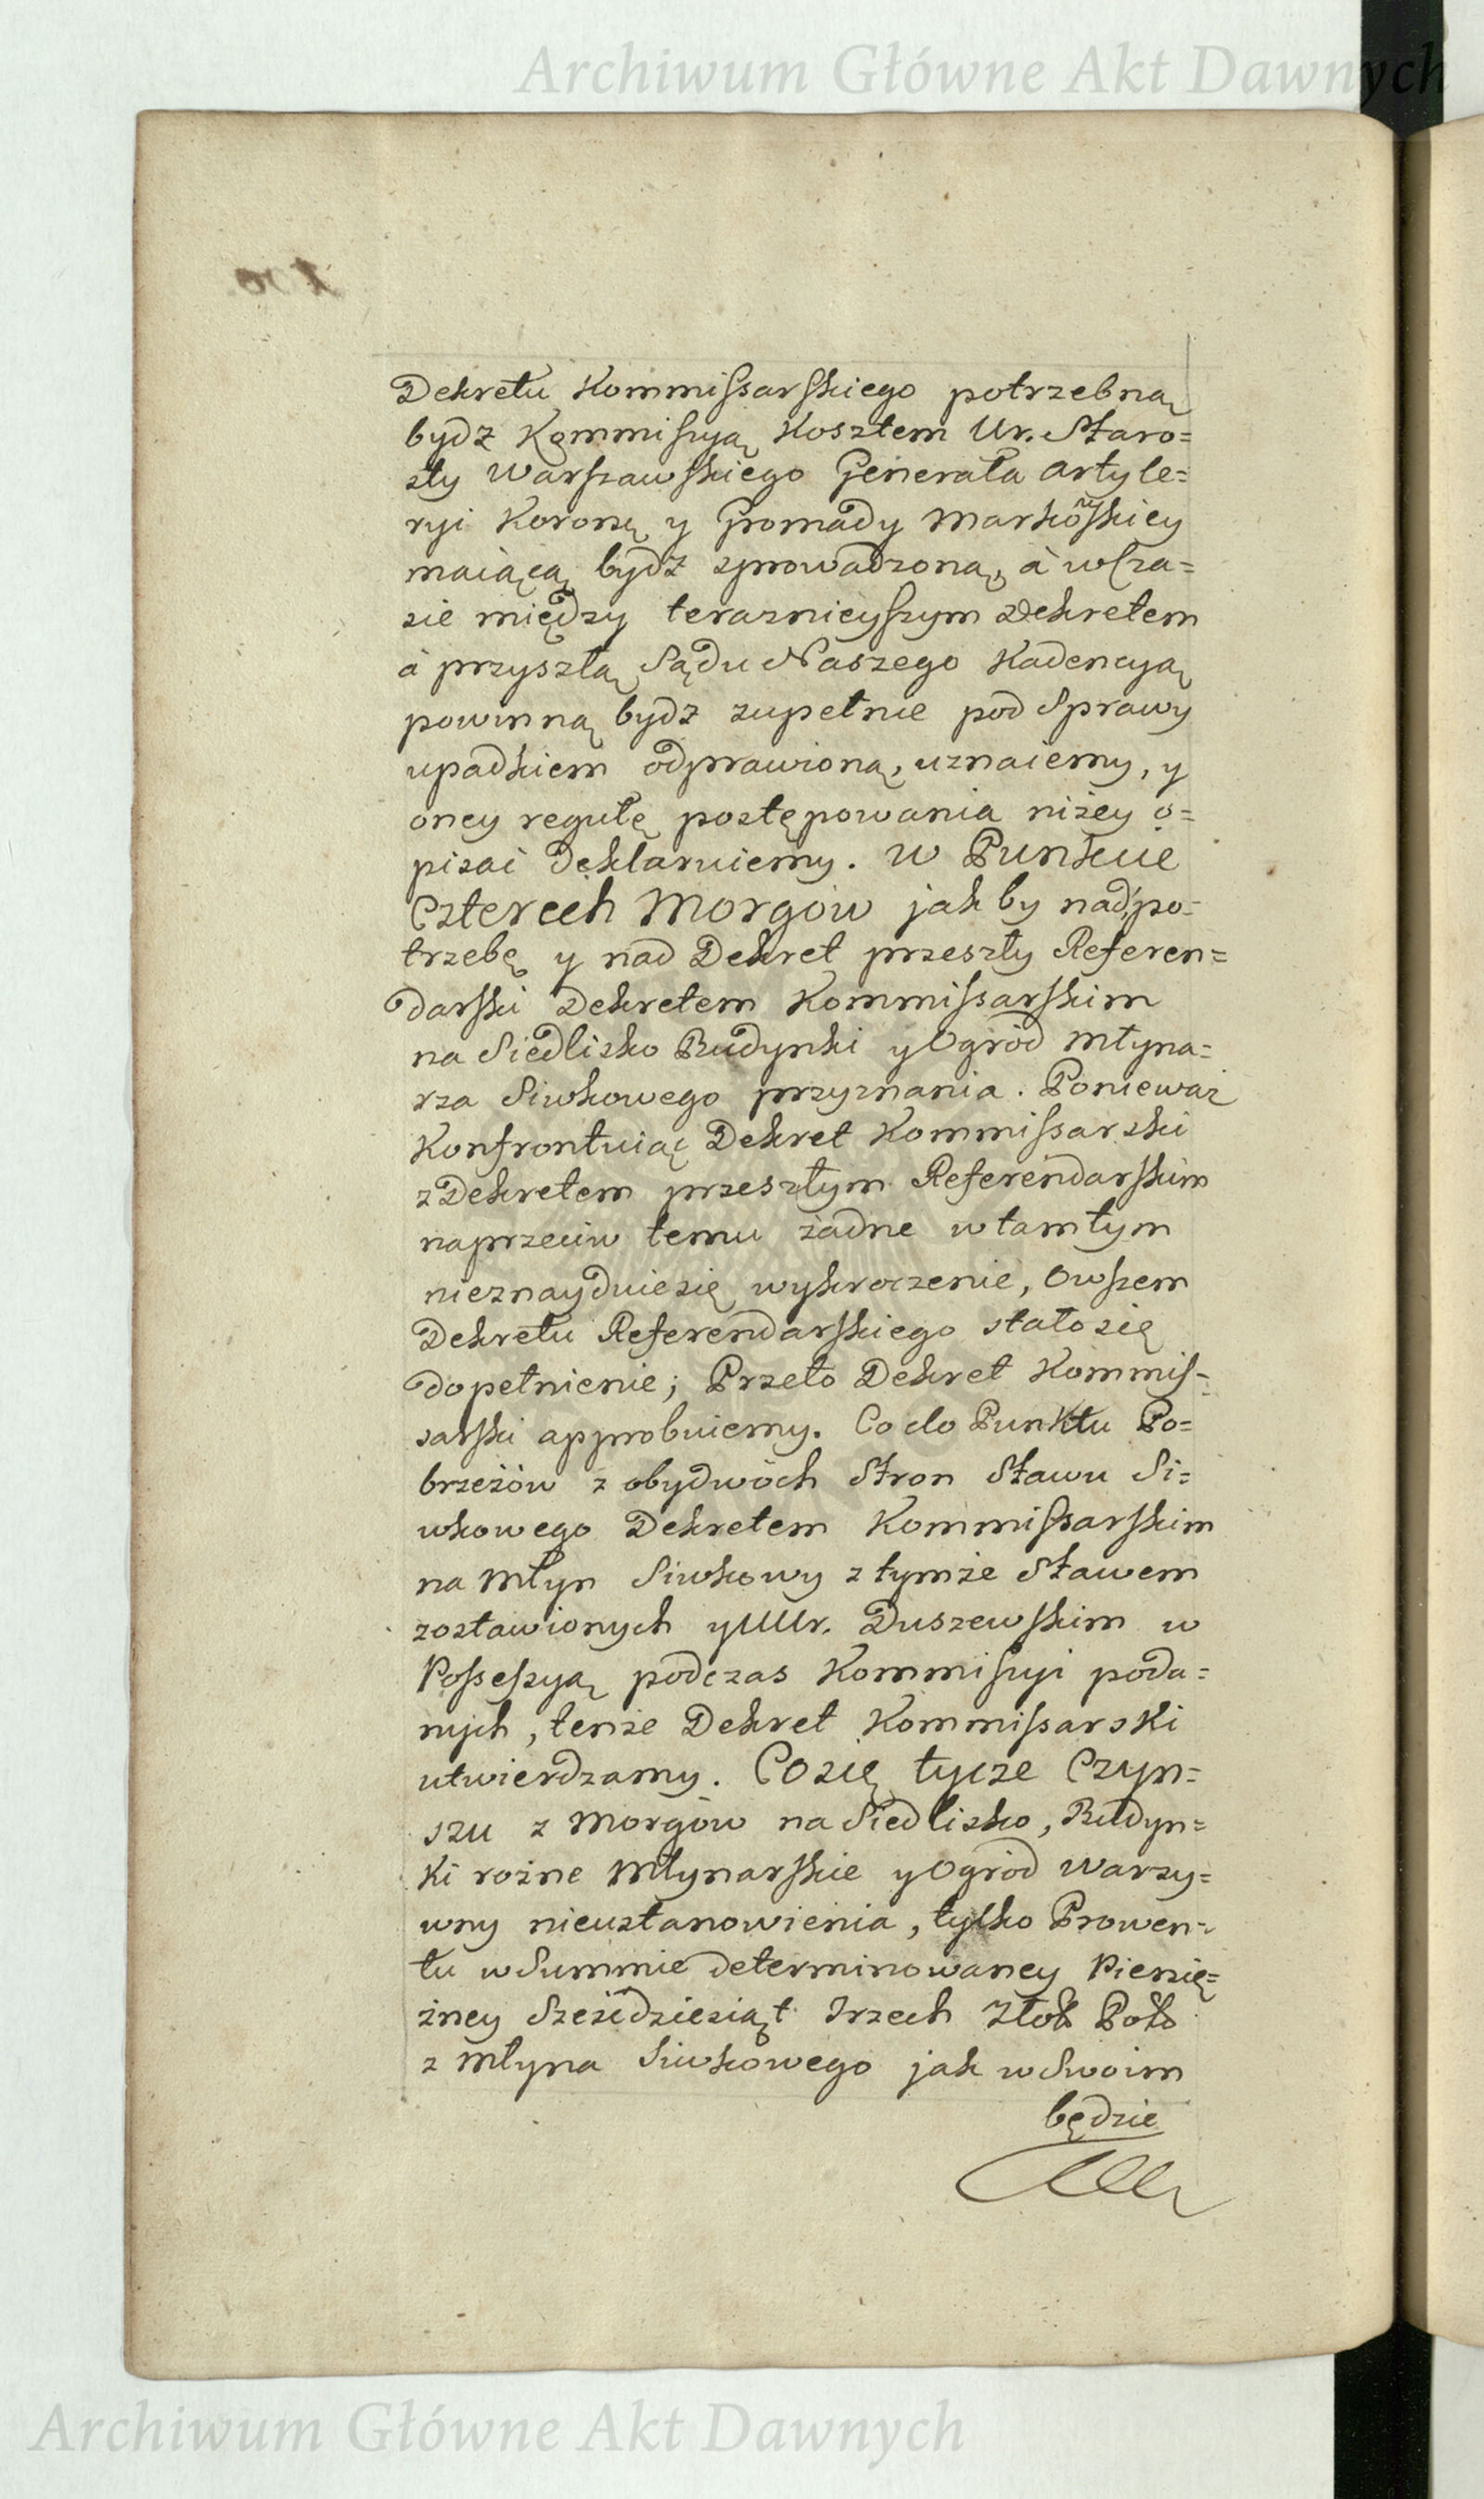 Archiwum Główne Akt Dawnych
Dekretu Kommissarskiego potrzebną
bydz Kommissyą Kosztem Ur. Staro=
sty Warszawskiego Generała Artyle=
ryi Koronę y Gromady Markowskiey
maiącą bydz sprowadzoną, à w Cza=
sie między teraznieyszym Dekretem
à przyszłą Sądu Naszego Kadencyą
powinną bydz zupełnie pod Sprawy
upadkiem odprawioną, uznaiemy, y
oney regułę postępowania niżey o=
pisać deklaruiemy. W Punkcie
Czterech Morgow jakby nad po=
trzebę y nad Dekret przeszły Referen=
darski Dekretem Kommissarskim
na Siedlisko Budynki y Ogród Młyna=
rza Siwkowego przyznania. Ponieważ
Konfrontuiąc Dekret Kommissarski
z Dekretem przeszłym Referendarskim
naprzeciw temu żadne w tamtym
nieznayduie się wykroczenie, Owszem
Dekretu Referendarskiego stało się
dopełnienie; Przeto Dekret Kommis=
sarski approbuiemy. Co do Punktu Po=
brzeżów z obydwóch Stron Stawu Si=
wkowego Dekretem Kommissarskim
na Młyn Siwkowy z tymże Stawem
zostawionych y UUr. Duszewskim w
Possessyą podczas Kommissyi poda=
nych, tenże Dekret Kommissarski
utwierdzamy. Co się tycze Czyn=
szu z Morgów na Siedlisko, Budyn=
ki rożne Młynarskie y Ogród Warzy=
wny nieustanowienia, tylko Prowen=
tu w Summie determinowaney Pienię=
żney Sześćdziesiąt Trzech Złot Pols
z Młyna Siwkowego jak w Swoim
będzie
Archiwum Główne Akt Dawnych